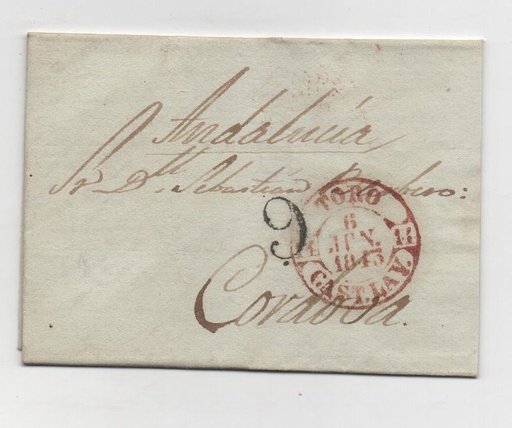 Andalucía
Sr. Dn. Sebastián
9
TORO
6
JUN.
1845
CAST. LA V.
Cordoba.